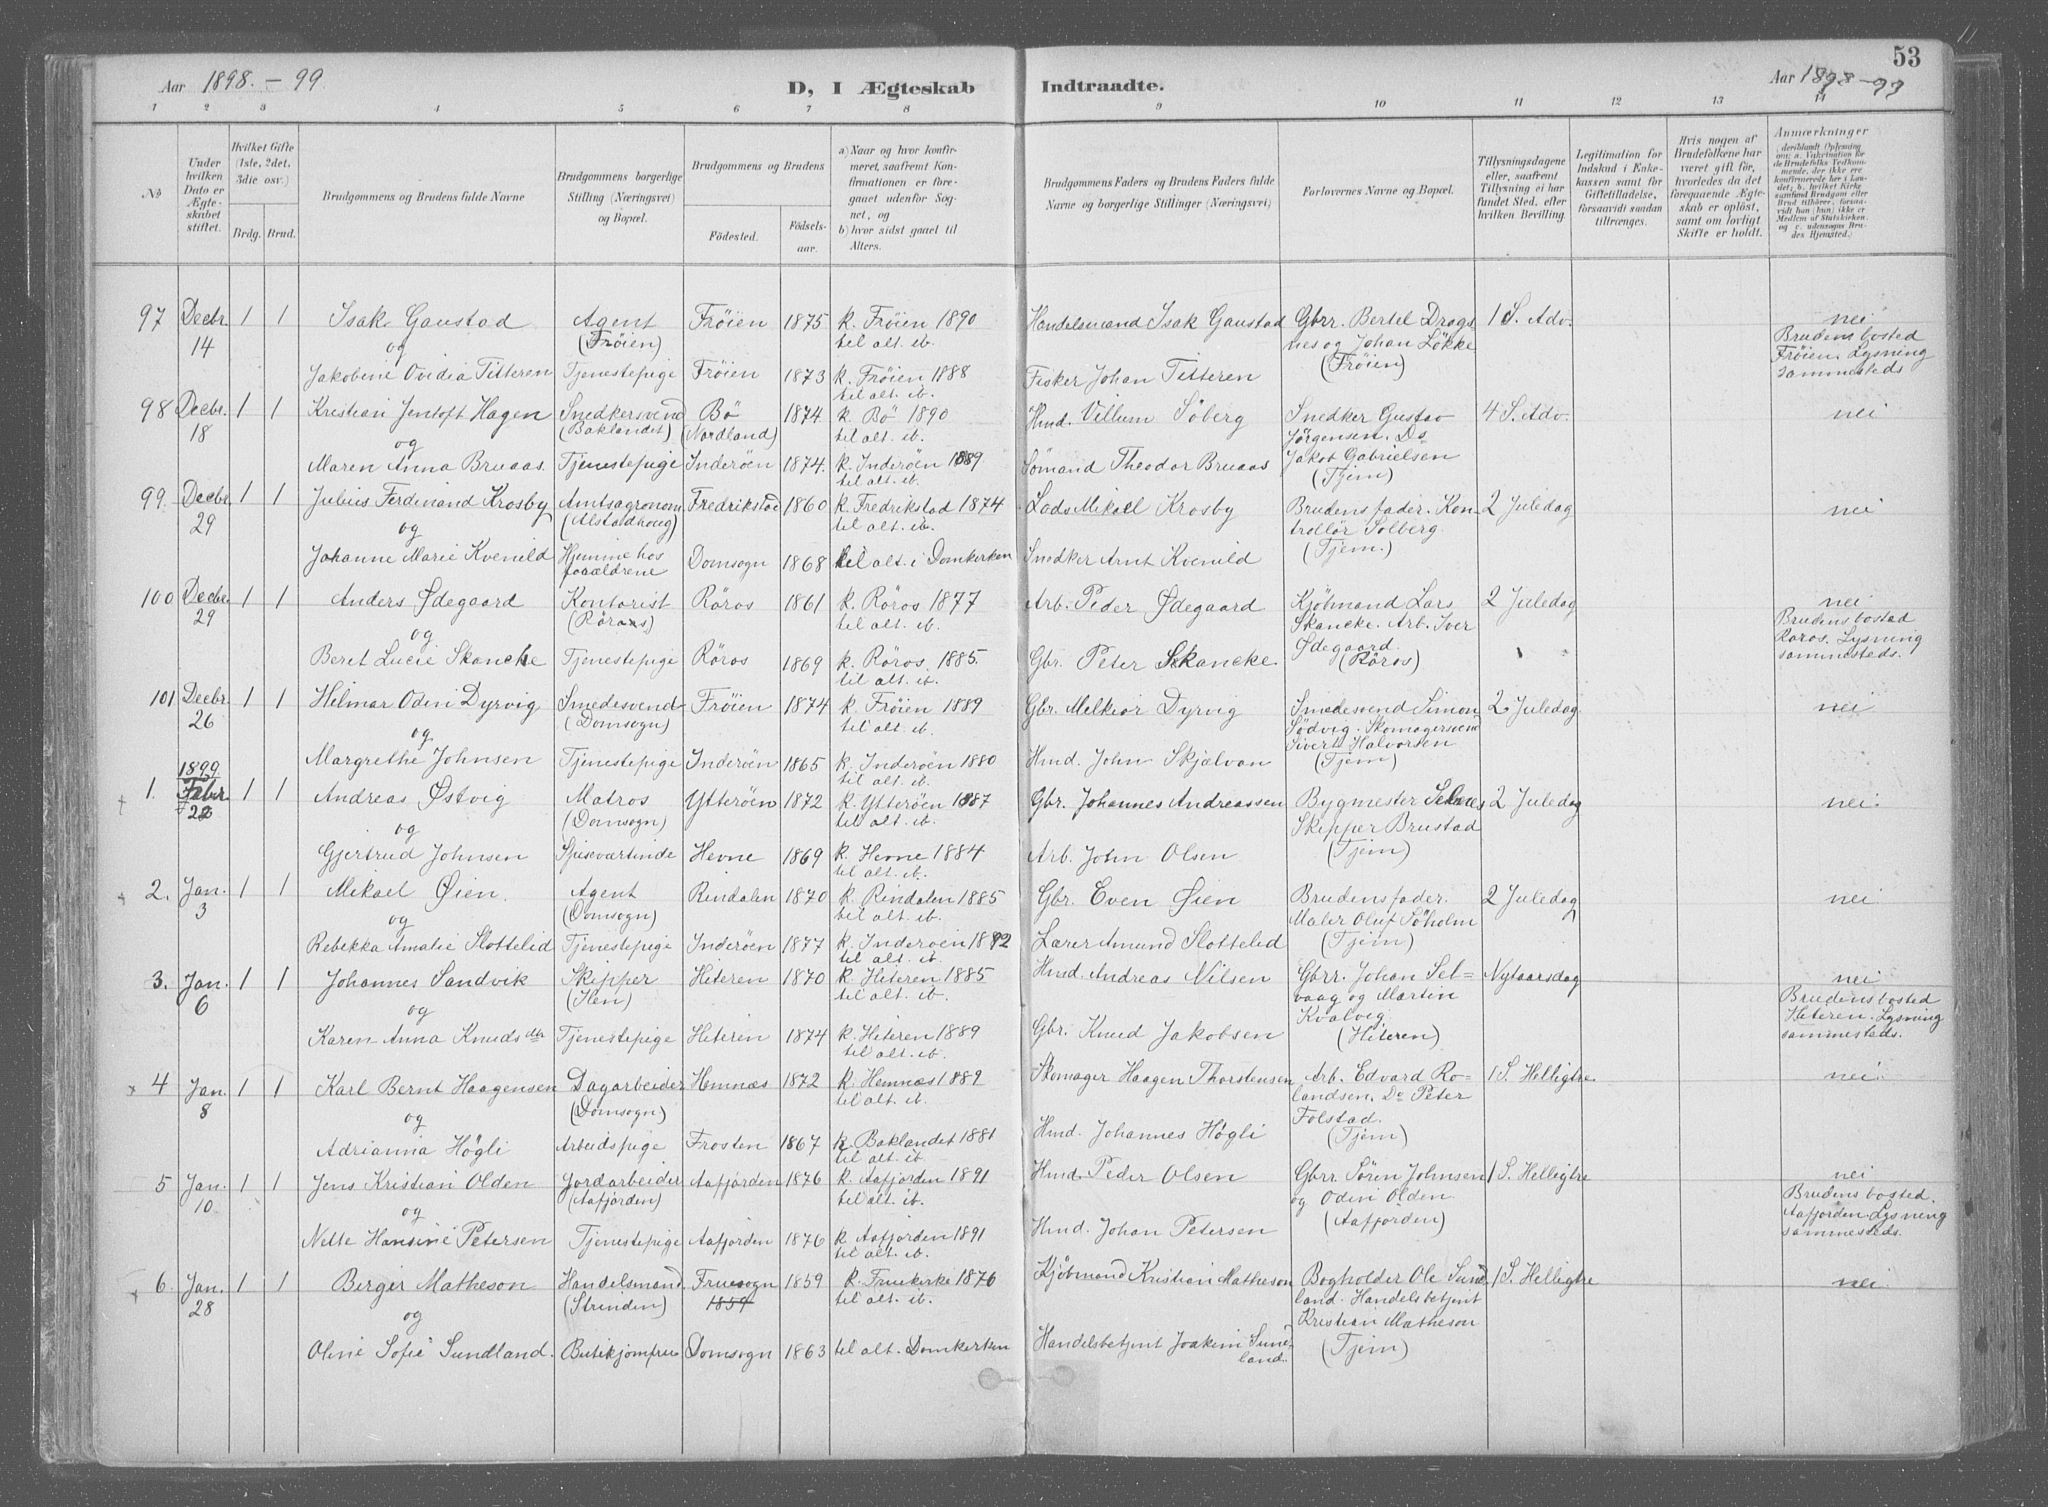 53
Aar 1898.-99.
D, I Ægteskab Indtraadte.
Aar 1898-99
1 2 3 4 5 6 7 8 9 10 11 12 13 14
No
Under hvilken Dato er Ægteskabet stiftet.
Hvilket Gifte (1ste, 2det, 3die osv.)
Brdg. Brud.
Brudgommens og Brudens fulde Navne
Brudgommens borgerlige Stilling (Næringsvei) og Bopæl.
Brudgommens og Brudens
Fødested. Fødselsaar.
a) Naar og hvor konfirmeret, saafremt Konfirmationen er foregaaet udenfor Sognet, og
b) hvor sidst gaaet til Alters.
Brudgommens Faders og Brudens Faders fulde Navne og borgerlige Stillinger (Næringsvei)
Forlovernes Navne og Bopæl.
Tillysningsdagene eller, saafremt Tillysning ei har fundet Sted, efter hvilken Bevilling.
Legitimation for Indskud i Enkekassen samt for Giftetilladelse, forsaavidt saadan tiltrænges.
Hvis nogen af Brudefolkene har været gift før, hvorledes da det foregaaende Ægteskab er opløst, samt om lovligt Skifte er holdt.
Anmærkninger
(deriblandt Oplysning om: a. Vakcination for de Brudefolks Vedkommende, der ikke ere konfirmerede her i Landet; b. hvilket Kirkesamfund Brudgom eller Brud tilhører, forsaavidt han (hun) ikke er Medlem af Statskirken, og c. udensogns Brudes Hjemsted.)
97 Decbr. 14 1 1 Isak Gaustad Agent (Frøien) Frøien 1875 k. Frøien 1890 til alt. ib. Handelsmand Isak Gaustad Gbrr. Bertel Dragsnes og Johan Løkke (Frøien) 1 S. Adv. nei Brudens bosted Frøien. Lysning sammesteds
og
Jakobine Ovidia Titteren Tjenestepige Frøien 1873 k. Frøien 1888 til alt. ib. Fisker Johan Titteren
98 Decbr. 18 1 1 Kristian Jentoft Hagen Snedkersvend (Baklandet) Bø (Nordland) 1874 k. Bø 1890 til alt. ib. Hmd. Villum Søberg Snedker Gustav Jørgensen. Do Jakob Gabrielsen (Tjem) 4 S. Adv. nei
og
Maren Anna Bruaas. Tjenestepige Inderøen 1874. k. Inderøen 1889 til alt. ib. Sømand Theodor Bruaas
99. Decbr. 29 1 1 Julius Ferdinand Krosby Amtsagronom (Alstadhoug) Fredrikstad 1860 k. Fredrikstad 1874 til alt. ib. Lods Mikael Krosby Brudens fader. Kontrollør Solberg. (Tjem.) 2 Juledag nei
og
Johanne Marie Kvenild Hjemme hos forældrene Domsogn 1868 til alt. i Domkirken Snedker Arnt Kvenild
100 Decbr. 29 1 1 Anders Ødegaard Kontorist (Røros) Røros 1861 k. Røros 1877 til alt. ib. Arb. Peder Ødegaard Kjøbmand Lars Skancke. Arb. Iver Ødegaard. (Røros) 2 Juledag nei Brudens bosted Røros. Lysning sammesteds.
og
Beret Lucie Skancke Tjenestepige Røros 1869 k. Røros 1885. til alt. ib. Gbr. Peter Skancke
101 Decbr. 26 1 1 Hilmar Odin Dyrvig Smedesvend (Domsogn) Frøien 1874 k. Frøien 1889 til alt. ib. Gbr. Melkior Dyrvig Smedesvend Simon Sødvig. Skomagersvend Sivert Halvorsen (Tjem) 2 Juledag nei
og
Margrethe Johnsen Tjenestepige Inderøen 1865 k. Inderøen 1880 til alt. ib. Hmd. John Skjelvan
1899
1. Febr. 22 1 1 Andreas Østvig Matros (Domsogn) Ytterøen 1872 k. Ytterøen 1887 til alt. ib. Gbr. Johannes Andreassen Bygmester Selmes Skipper Brustad (Tjem) 2 Juledag nei
og
Gjertrud Johnsen Spiseværtinde Hevne 1869 k. Hevne 1884 til alt. ib. Arb. John Olsen
2. Jan. 3 1 1 Mikael Øien. Agent (Domsogn) Rindalen 1870 k. Rindalen 1885 til alt. ib. Gbr. Even Øien Brudens fader. Maler Oluf Søholm (Tjem) 2 Juledag nei
og
Rebekka Amalie Slottelid Tjenestepige Inderøen 1877 k. Inderøen 1892 til alt. ib. Lærer Amund Slottelid
3. Jan. 6 1 1 Johannes Sandvik Skipper (Ilen) Hiteren 1870 k. Hiteren 1885 til alt. ib. Hmd. Andreas Nilsen Gbrr. Johan Selvaag og Martin Kvalvig (Hiteren) Nytaarsdag nei Brudens bosted Hiteren. Lysning sammesteds.
og
Karen Anna Knudsdtr Tjenestepige Hiteren 1874 k. Hiteren 1889 til alt. ib. Gbr. Knud Jakobsen
4 Jan. 8 1 1 Karl Bernt Haagensen Dagarbeider (Domsogn) Hemnæs 1872 k. Hemnæs 1889 til alt. ib. Skomager Haagen Thorstensen Arb. Edvard Rolandsen. Do Peter Folstad. (Tjem) 1 S. Helligtre nei
og
Adrianna Høgli Arbeidspige Frosten 1867 k. Baklandet 1881 til alt. ib. Hmd. Johannes Høgli
5 Jan. 10 1 1 Jens Kristian Olden Jordarbeider (Aafjorden) Aafjorden 1876 k. Aafjorden 1891 til alt. ib. Hmd. Peder Olsen Gbrr. Søren Johnsen og Odin Olden. (Aafjorden) 1 S. Helligtre nei Brudens bosted. Aafjorden. Lysning sammesteds.
og
Nelle Hansine Petersen Tjenestepige Aafjorden 1876 k. Aafjorden 1891 til alt. ib. Hmd. Johan Petersen
6. Jan. 28 1 1 Birger Matheson Handelsmand (Strinden) Fruesogn 1859 1859 k. Fruekirke 1876 til alt. ib. Kjøbmand Kristian Matheson Bogholder Ole Sundland. Handelsbetjent Kristian Matheson (Tjem) 1 S. Helligtre nei
og
Oline Sofie Sundland. Butikjomfru Domsogn 1863 til alt. Domkirken Handelsbetjent Joakim Sundland.